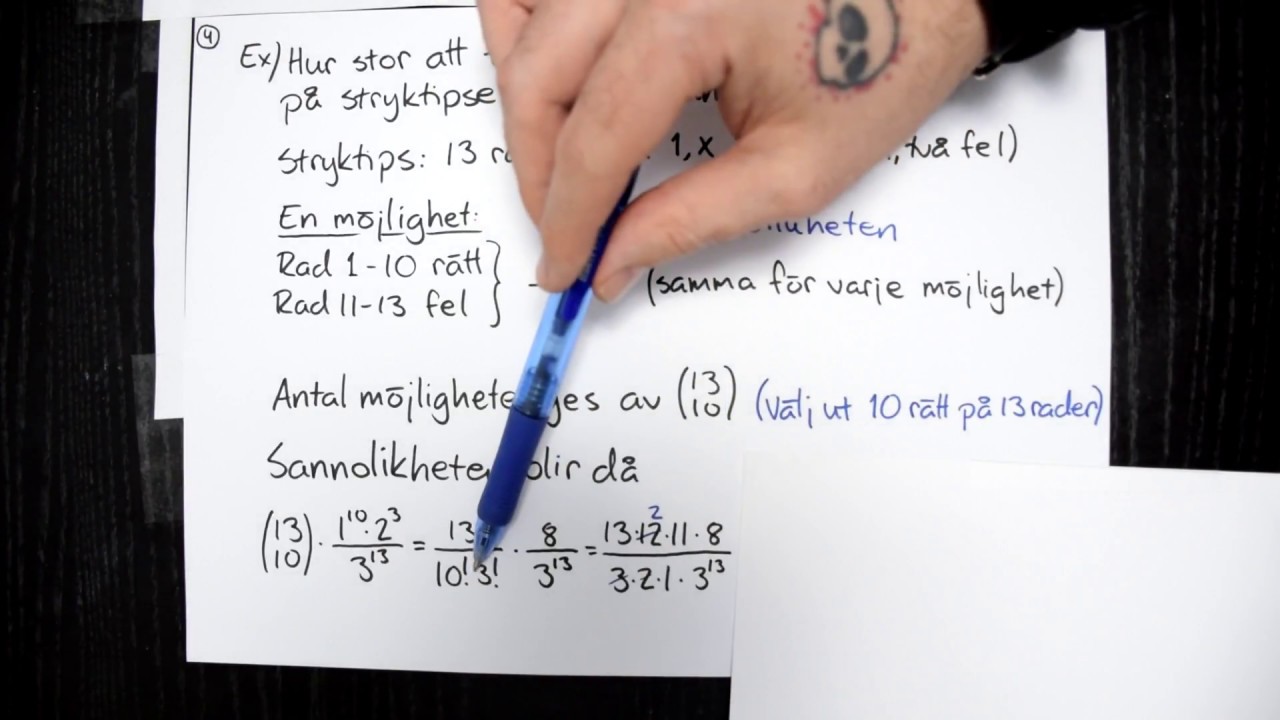 4
Ex) Hur stor att
på stryktipse
Stryktips: 13 1, x två fel)
En möjlighet:
Rad 1-10 rätt
Rad 11-13 fel
(samma för varje möjlighet)
Antal möjlighete ges av (13 10) (välj ut 10 rätt på 13 rader)
Sannolikheten blir då
(13 10) · 1^10·2^3 / 3^13 = 13 / 10!3! · 8 / 3^13 = 13·12·11·8 / 3·2·1·3^13
2